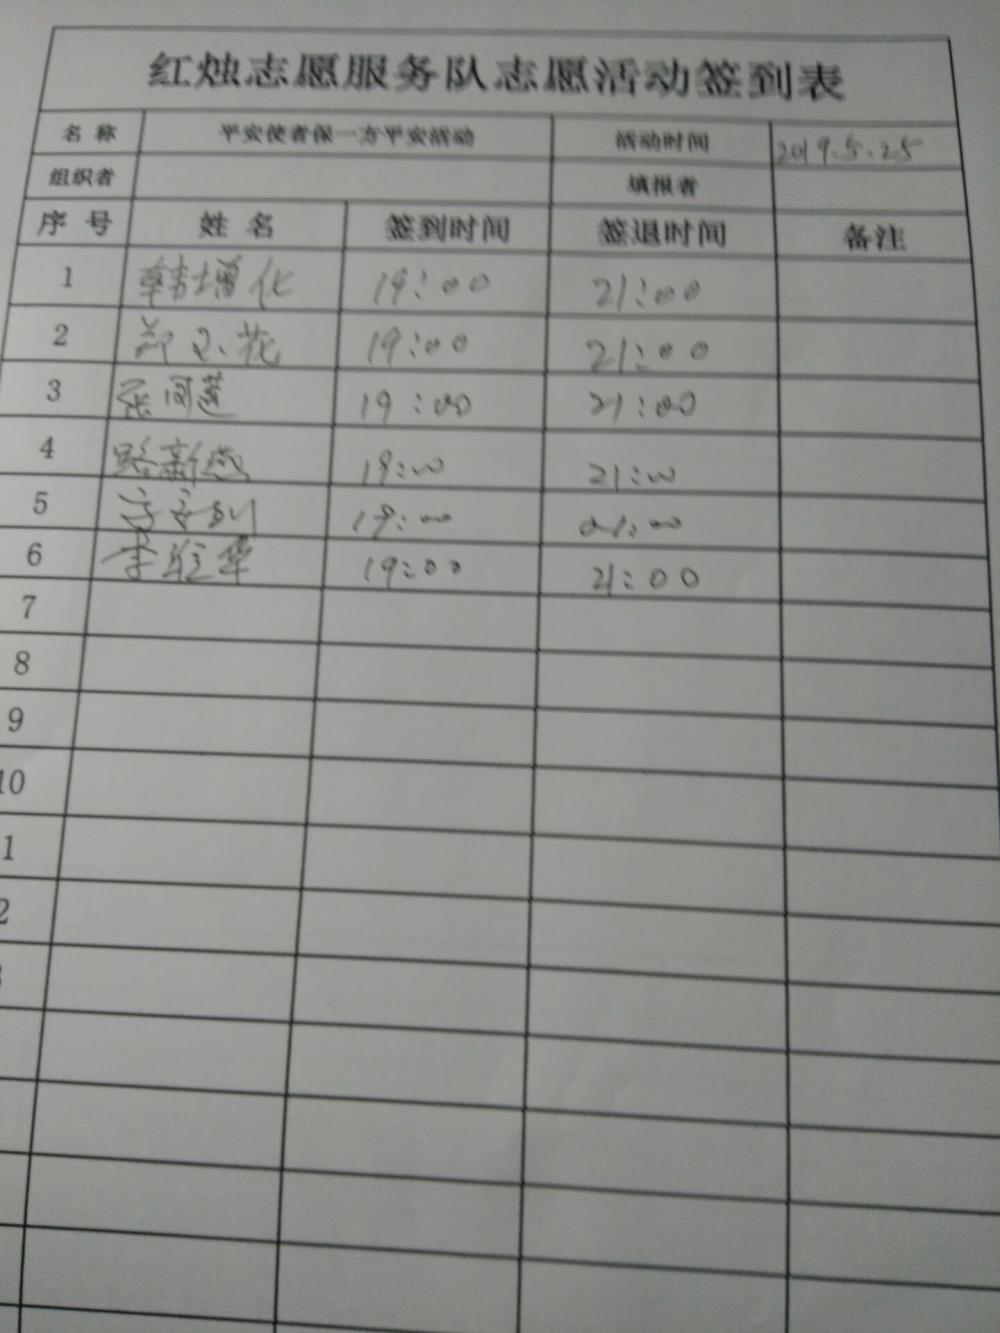 红烛志愿服务队志愿活动签到表
名称 平安使者保一方平安活动 活动时间 2019.5.25
组织者 填报者
序号 姓名 签到时间 签退时间 备注
1 韩增化 19:00 21:00
2 19:00 21:00
3 张同莲 19:00 21:00
4 路新燕 19:00 21:00
5 19:00 21:00
6 李 华 19:00 21:00
7
8
9
10
1
2